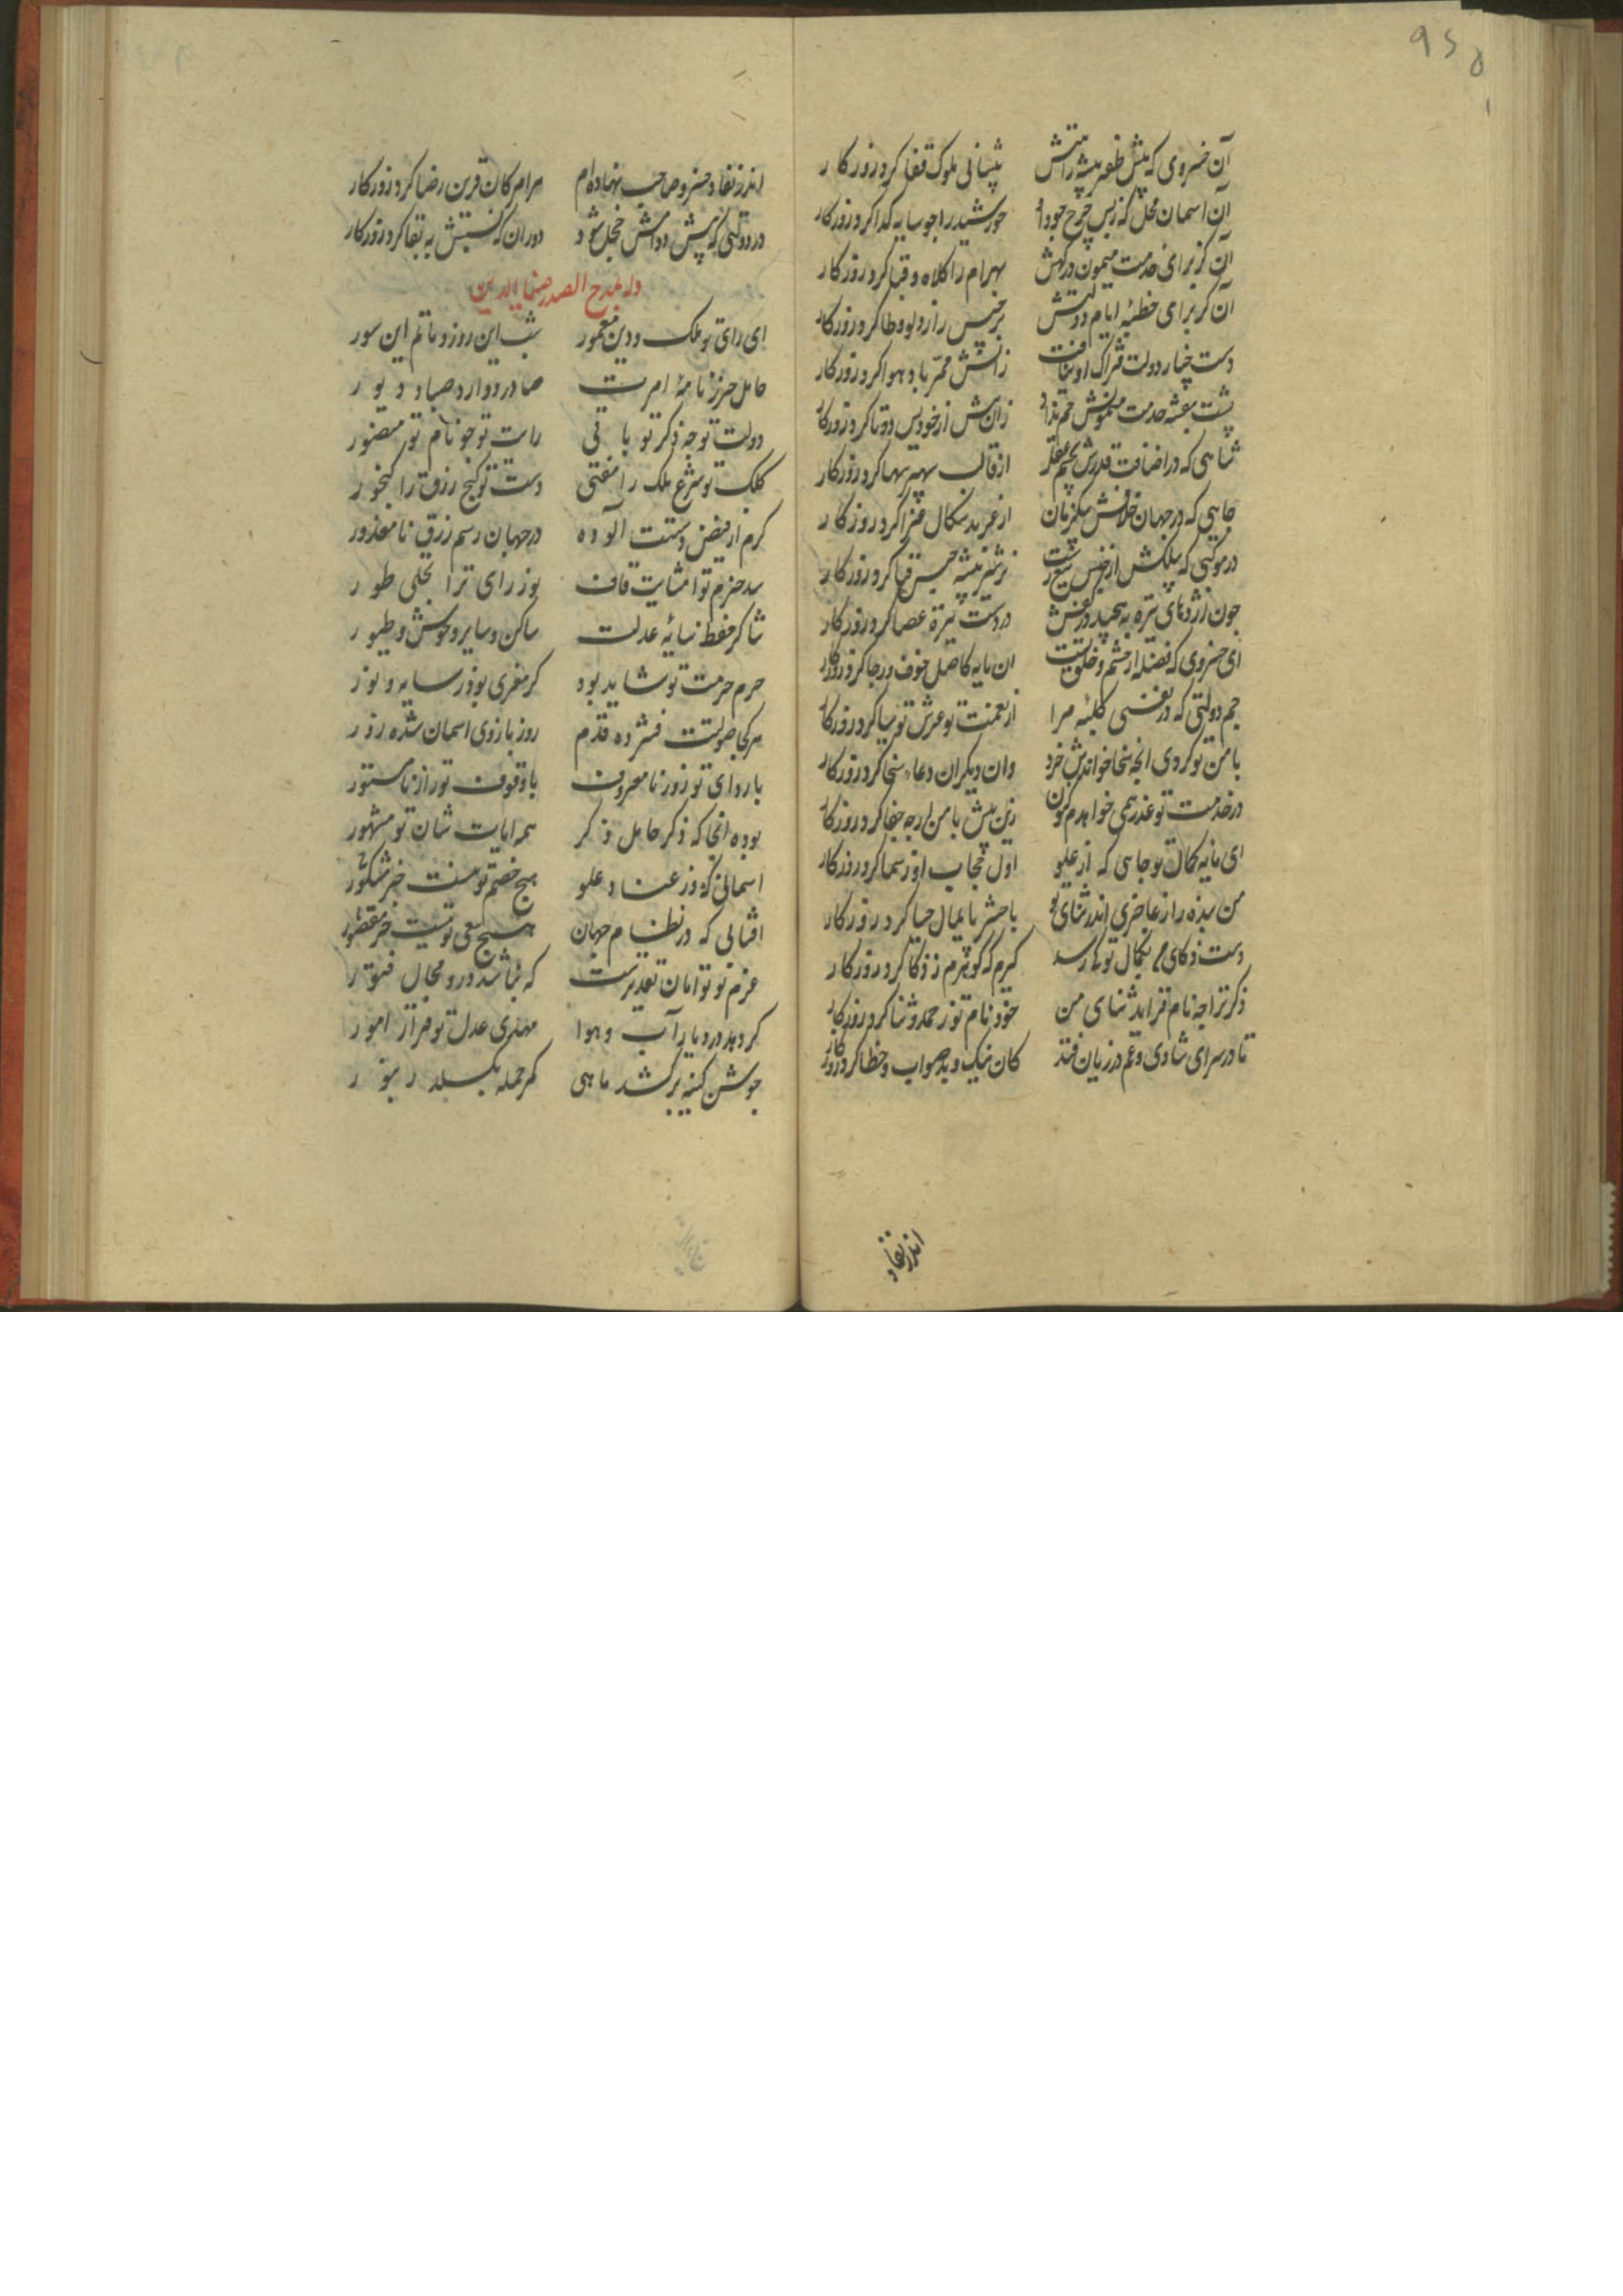 ۹۵۵
آن خسروی که پیش ظفر پیشه رایتش پیشانی ملوک قفا کرد روزکار
آن اسمان محل که زبس خرج جود او خورشید را جو سایه کدا کرد روزکار
آن کز برای خدمت میمون درکهش بهرام را کلاه و قبا کرد روزکار
آن کز برای خطبهٔ ایام دولتش برجیس را ردا و وطا کرد روزکار
دست جنار دولت فتراک او نیافت زآتش ممر باد هوا کرد روزکار
پشت بنفشه خدمت میمونش خم نداد زان پیش از خودیش دوتا کرد روزکار
شاهی که در اضافت قدرش بچشم عقل از قالب سپهر سها کرد روزکار
جاهی که در جهان خلافش بیکزمان از عمر بدسکال فنا کرد روزکار
در موکبی که پیلکش از خیس
جون اژدهای نیزه به پیچید در کفش در دست نیزه عصا کرد روزکار
ای خسروی که فضله از خشم و خلق تست ان مایه کاصل خوف و رجا کرد روزکار
جم دولتی که در نفسی کلبهٔ مرا از نعمت تو عرش تو سبا کرد روزکار
با من تو کردی انجه سخا خواندش خرد وان دیکران دعاء سخا کرد روزکار
در خدمت تو عذر همی خواهدم کنون زین پیش با من ارجه جفا کرد روزکار
ای مایه کمال تو جاهی که از علو اول حجاب او ز سما کرد روزکار
من بنده را ز عاجزی اندر ثنای تو با حشر پایمال حیا کرد روزکار
دست ذکای بکمال تو کی رسد کیرم که کوهرم ز ذکا کرد روزکار
ذکر ترا جه نام فزاید ثنای من خود نام تو ز حمد و ثنا کرد روزکار
تا در سرای شادی و غم در زیان فتد کان نیک و بد صواب و خطا کرد روزکار
اندر نفاذ
اندر نفاذ خسرو صاحب نهاده ام هرام کان قرین رضا کرد روزکار
در دولتی که پیش دوامش خجل شود دوران که نسبتش به بقا کرد روزکار
وله یمدح الصدر ضیاء الدین
ای رای تو ملک و دین معمور شب این روز و ماتم این سور
حامل حرز نامهٔ امرت صادر و وارد صبا و دبور
دولت تو جه ذکر تو باقی رایت تو جو نام تو منصور
کلک تو شرع ملک را مفتی دست تو کنج رزق را کنجور
کرم از فیض دستت آلوده در جهان رسم رزق نامعذور
سد حزم ترا متانت قاف نور رای ترا تجلی طور
شاکر حفظ سایهٔ عدلت ساکن و سایر وحوش و طیور
حرم حرمت تو شاید بود کر مفری بود ز سایه و نور
هر کجا صولتت فشرده قدم روز بازوی اسمان شده زور
با روای تو زور نامعروف با وقوف تو راز نامستور
بوده انجا که ذکر حامل ذکر همه ایات شان تو مشهور
اسمانی که در عناد و علو هیچ خصم تو نیست جز مشکور
افتابی که در نظام جهان هیچ سعی تو نیست جز مقصور
عزم تو توامان تقدیرست که نباشد درو مجال فتور
کر دهد در دیار آب و هوا مهدی عدل تو قرار امور
جوشن کینه برکشد ماهی کمر حمله بکسلد زنبور